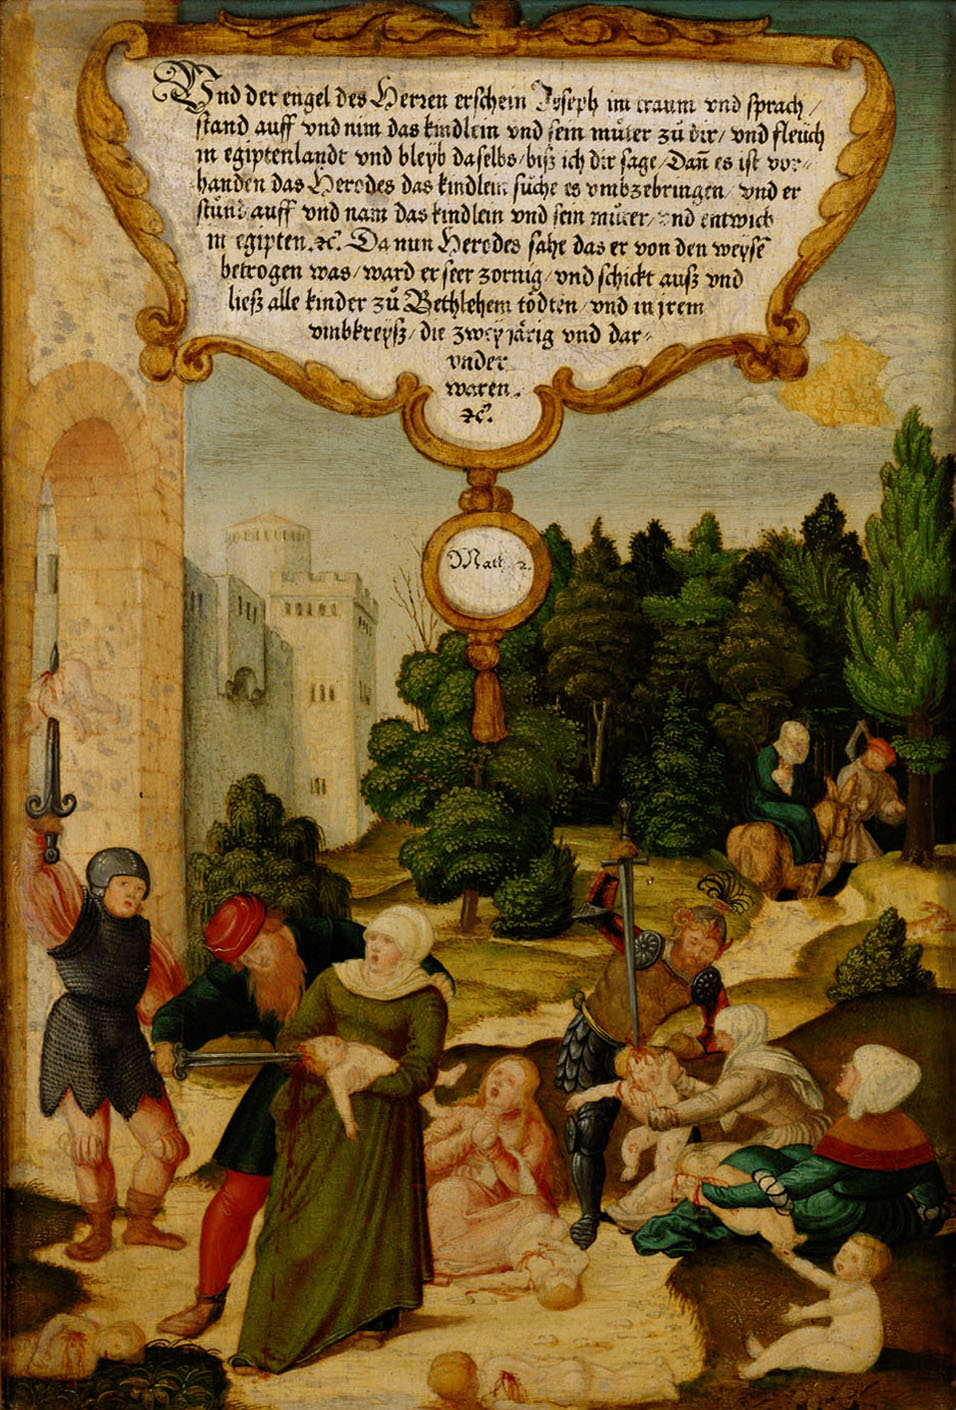 Vnd der engel des Herren erschein Joseph im traum vnd sprach/
stand auff vnd nim das kindlein vnd sein muͤter zuͦ dir/ vnd fleuch
in egiptenlandt vnd bleyb daselbs/ biß ich dir sage/ Dañ es ist vor⸗
handen das Herodes das kindlein suͦche es vmbzebringen/ vnd er
stuͦnd auff vnd nam das kindlein vnd sein muͦter/ vnd entwich
in egipten. ꝛc. Da nun Herodes sahe das er von den weysẽ
betrogen was/ ward er seer zornig/ vnd schickt auß vnd
ließ alle kinder zuͦ Bethlehem toͤdten/ vnd in jrem
vmbkreyß/ die zweyjaͤrig vnd dar⸗
vnder
waren.
ꝛc.
Math. 2.